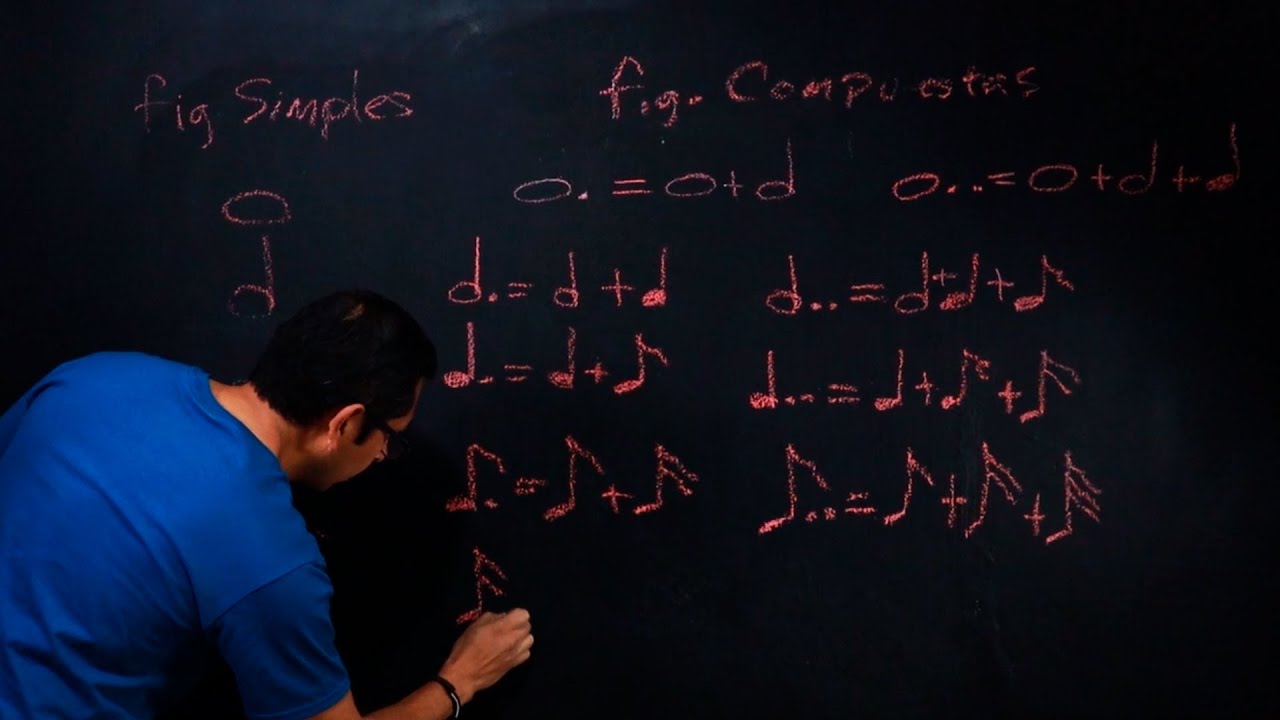 fig Simples
fig. Compuestas
𝅝. = 𝅝 + 𝅗𝅥
𝅝.. = 𝅝 + 𝅗𝅥 + 𝅘𝅥
𝅝
𝅗𝅥
𝅗𝅥. = 𝅗𝅥 + 𝅘𝅥
𝅗𝅥.. = 𝅗𝅥 + 𝅘𝅥 + 𝅘𝅥𝅮
𝅘𝅥. = 𝅘𝅥 + 𝅘𝅥𝅮
𝅘𝅥.. = 𝅘𝅥 + 𝅘𝅥𝅮 + 𝅘𝅥𝅯
𝅘𝅥𝅮. = 𝅘𝅥𝅮 + 𝅘𝅥𝅯
𝅘𝅥𝅮.. = 𝅘𝅥𝅮 + 𝅘𝅥𝅯 + 𝅘𝅥𝅰
𝅘𝅥𝅯